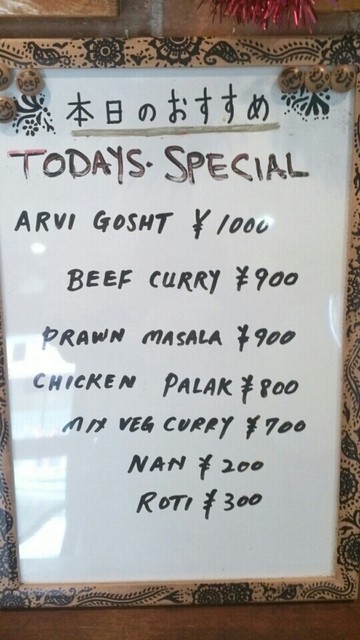 本日のおすすめ
TODAYS. SPECIAL
ARVI GOSHT ¥1000
BEEF CURRY ¥900
PRAWN MASALA ¥900
CHICKEN PALAK ¥800
MIX VEG CURRY ¥700
NAN ¥200
ROTI ¥300